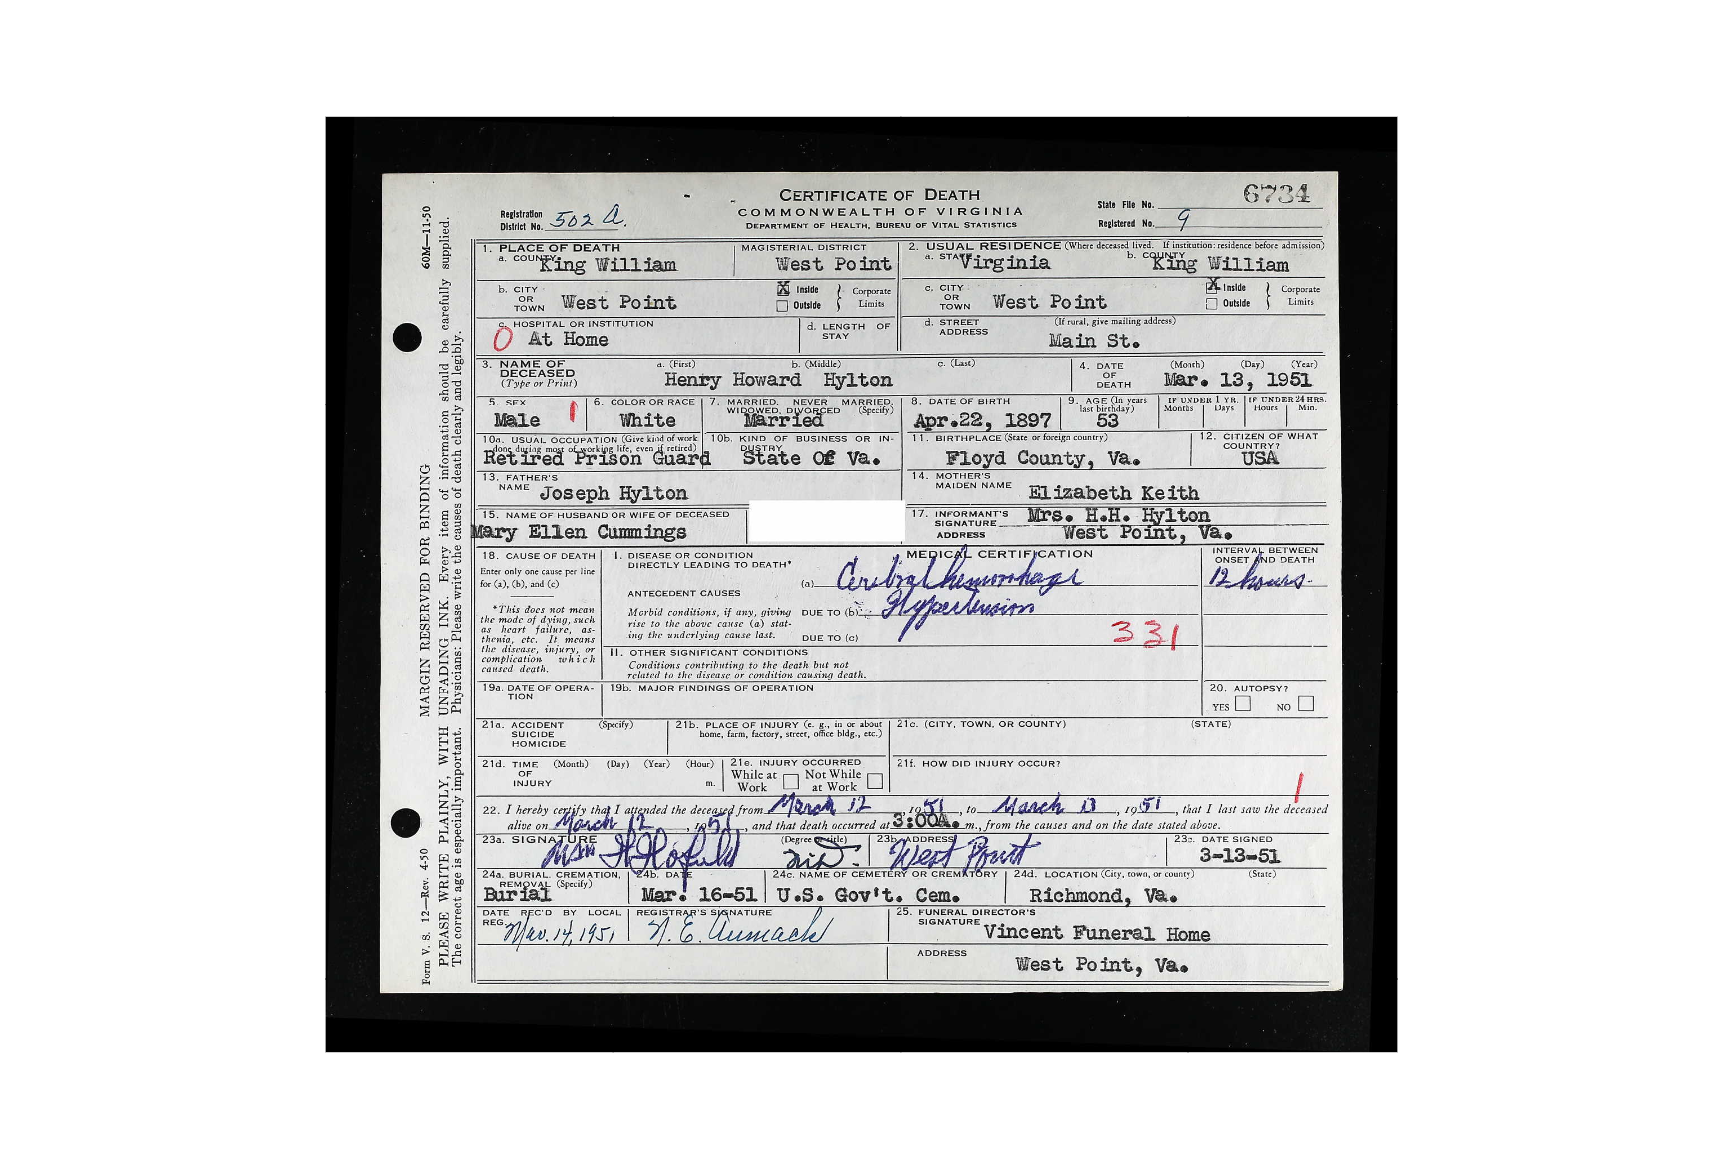 CERTIFICATE OF DEATH
COMMONWEALTH OF VIRGINIA
DEPARTMENT OF HEALTH, BUREAU OF VITAL STATISTICS
Registration District No. 502 A.
State File No. 6734
Registered No. 9
1. PLACE OF DEATH
a. COUNTY King William
MAGISTERIAL DISTRICT West Point
2. USUAL RESIDENCE (Where deceased lived. If institution: residence before admission)
a. STATE Virginia b. COUNTY King William
b. CITY OR TOWN West Point X Inside Outside } Corporate Limits
c. CITY OR TOWN West Point X Inside Outside } Corporate Limits
c. HOSPITAL OR INSTITUTION
0 At Home
d. LENGTH OF STAY
d. STREET ADDRESS (If rural, give mailing address)
Main St.
3. NAME OF DECEASED (Type or Print) a. (First) b. (Middle) c. (Last)
Henry Howard Hylton
4. DATE OF DEATH (Month) (Day) (Year)
Mar. 13, 1951
5. SEX
Male 1
6. COLOR OR RACE
White
7. MARRIED, NEVER MARRIED, WIDOWED, DIVORCED (Specify)
Married
8. DATE OF BIRTH
Apr.22, 1897
9. AGE (In years last birthday)
53
IF UNDER 1 YR. Months Days
IF UNDER 24 HRS. Hours Min.
10a. USUAL OCCUPATION (Give kind of work done during most of working life, even if retired)
Retired Prison Guard
10b. KIND OF BUSINESS OR INDUSTRY
State Of Va.
11. BIRTHPLACE (State or foreign country)
Floyd County, Va.
12. CITIZEN OF WHAT COUNTRY?
USA
13. FATHER'S NAME Joseph Hylton
14. MOTHER'S MAIDEN NAME Elizabeth Keith
15. NAME OF HUSBAND OR WIFE OF DECEASED
Mary Ellen Cummings
17. INFORMANT'S SIGNATURE Mrs. H.H. Hylton
ADDRESS West Point, Va.
18. CAUSE OF DEATH
Enter only one cause per line for (a), (b), and (c)
*This does not mean the mode of dying, such as heart failure, asthenia, etc. It means the disease, injury, or complication which caused death.
MEDICAL CERTIFICATION
INTERVAL BETWEEN ONSET AND DEATH
I. DISEASE OR CONDITION DIRECTLY LEADING TO DEATH*
(a) Cerebral hemorrhage 12 hours
ANTECEDENT CAUSES
Morbid conditions, if any, giving rise to the above cause (a) stating the underlying cause last.
DUE TO (b) Hypertension
DUE TO (c)
331
II. OTHER SIGNIFICANT CONDITIONS
Conditions contributing to the death but not related to the disease or condition causing death.
19a. DATE OF OPERATION
19b. MAJOR FINDINGS OF OPERATION
20. AUTOPSY?
YES NO
21a. ACCIDENT SUICIDE HOMICIDE (Specify)
21b. PLACE OF INJURY (e. g., in or about home, farm, factory, street, office bldg., etc.)
21c. (CITY, TOWN, OR COUNTY) (STATE)
21d. TIME OF INJURY (Month) (Day) (Year) (Hour) m.
21e. INJURY OCCURRED
While at Work Not While at Work
21f. HOW DID INJURY OCCUR?
1
22. I hereby certify that I attended the deceased from March 12, 1951, to March 13, 1951, that I last saw the deceased
alive on March 12, 1951, and that death occurred at 3:00A. m., from the causes and on the date stated above.
23a. SIGNATURE
(Degree or title)
M.D.
23b. ADDRESS
West Point
23c. DATE SIGNED
3-13-51
24a. BURIAL, CREMATION, REMOVAL (Specify)
Burial
24b. DATE
Mar. 16-51
24c. NAME OF CEMETERY OR CREMATORY
U.S. Gov't. Cem.
24d. LOCATION (City, town, or county) (State)
Richmond, Va.
DATE REC'D BY LOCAL REG. Mar. 14, 1951
REGISTRAR'S SIGNATURE
N. E. Aumack
25. FUNERAL DIRECTOR'S SIGNATURE Vincent Funeral Home
ADDRESS
West Point, Va.
Form V. S. 12—Rev. 4-50 MARGIN RESERVED FOR BINDING 60M—11-50
PLEASE WRITE PLAINLY, WITH UNFADING INK. Every item of information should be carefully supplied.
The correct age is especially important. Physicians: Please write the causes of death clearly and legibly.